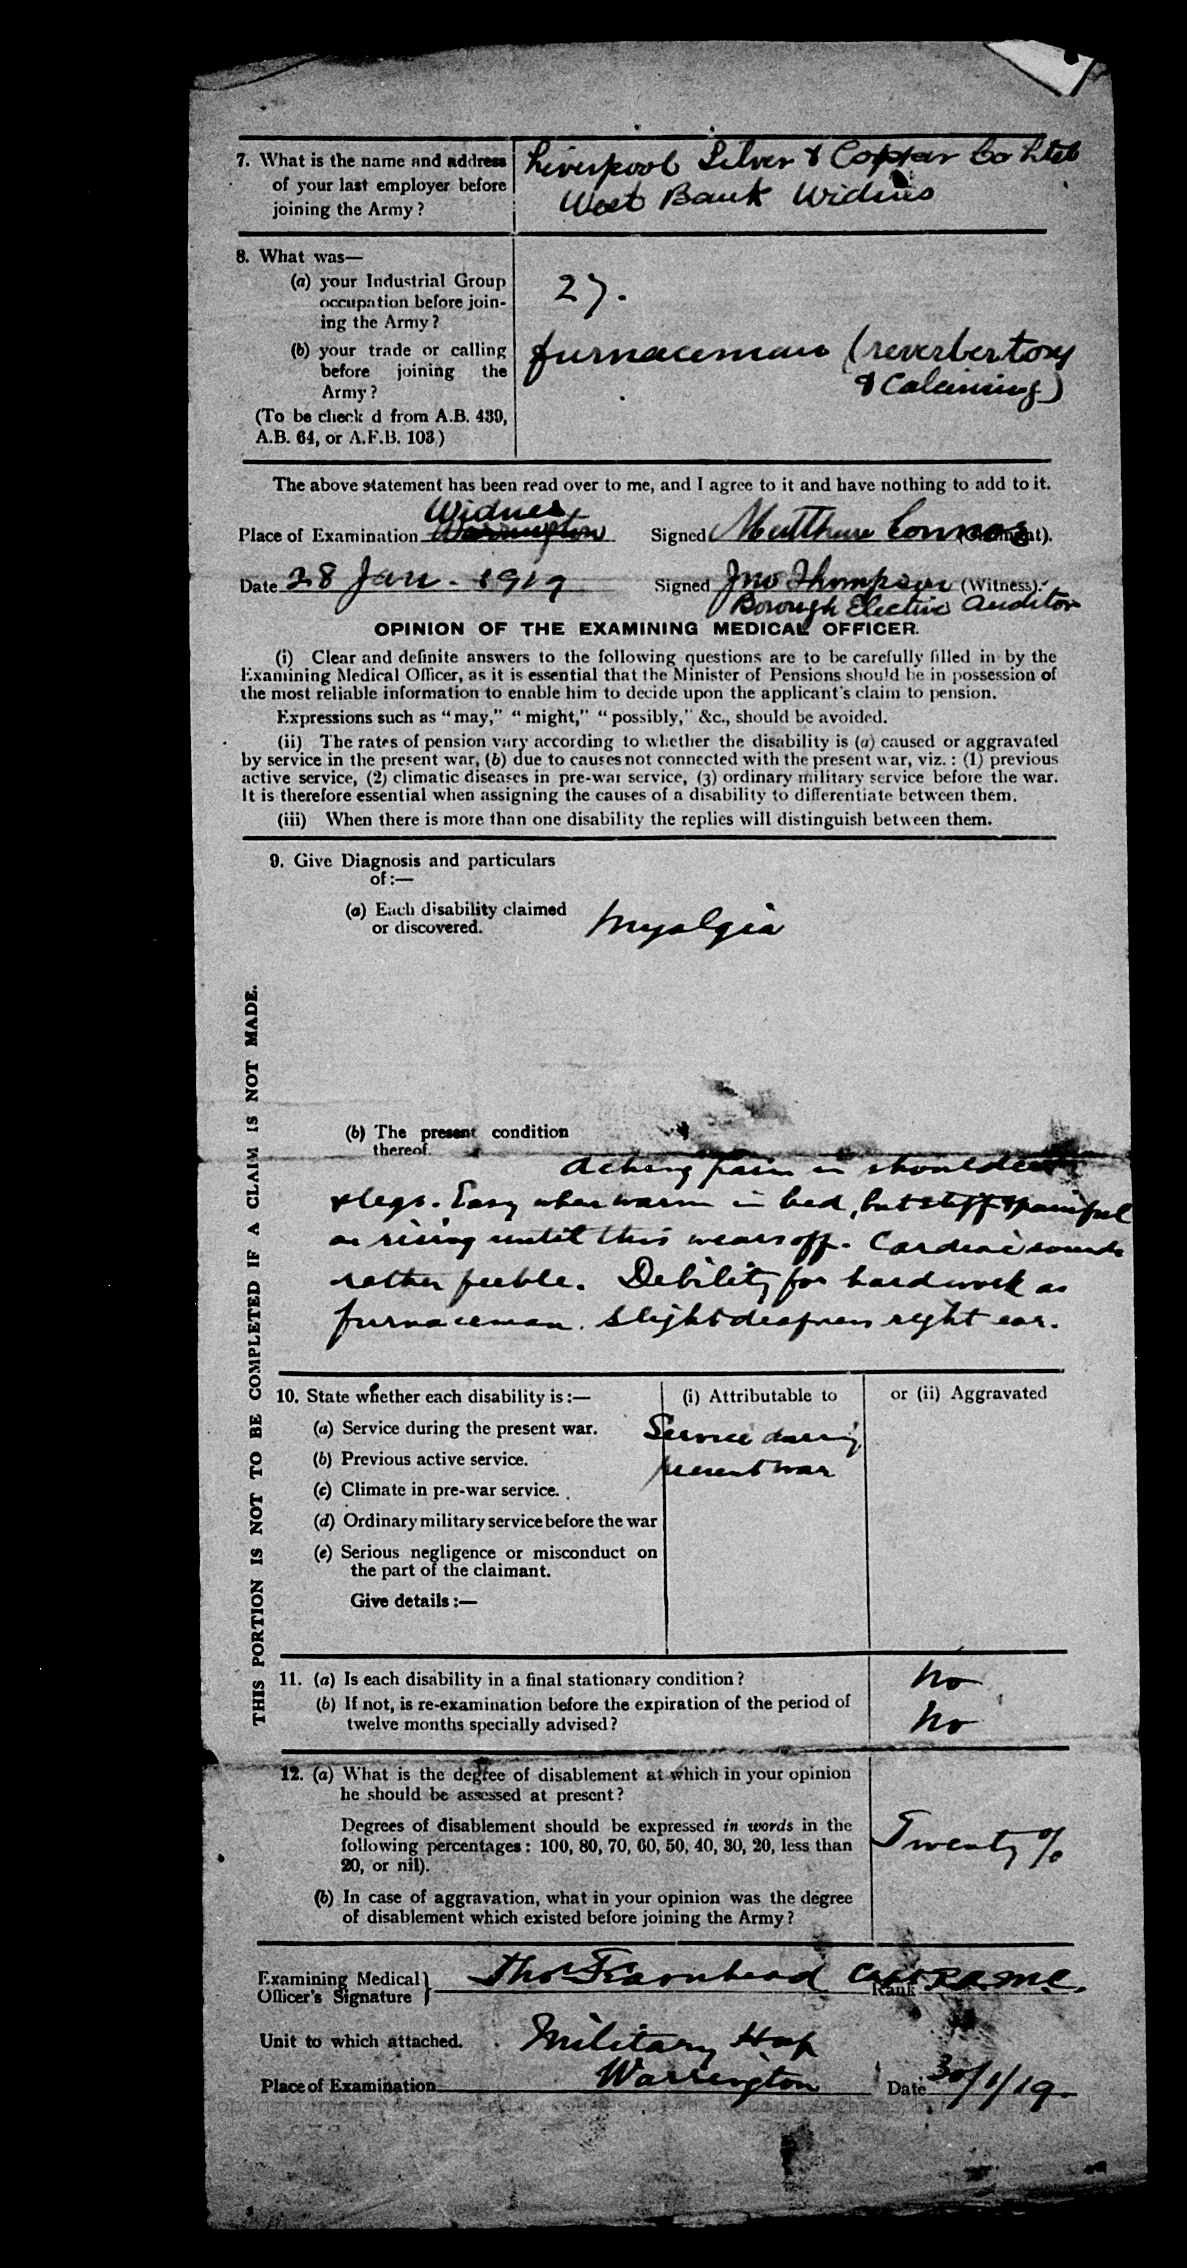 7. What is the name and address Liverpool Silver & Copper Co Ltd
of your last employer before West Bank Widnes
joining the Army?
8. What was—
(a) your Industrial Group 27.
occupation before join-
ing the Army?
(b) your trade or calling furnaceman (reverbertory
before joining the & Calcining)
Army?
(To be check d from A.B. 439,
A.B. 64, or A.F.B. 103)
The above statement has been read over to me, and I agree to it and have nothing to add to it.
Widnes
Place of Examination Warrington Signed Matthew Connor (Claimant).
Date 28 Jan. 1919 Signed Jno Thompson (Witness).
Borough Elective Auditor
OPINION OF THE EXAMINING MEDICAL OFFICER.
(i) Clear and definite answers to the following questions are to be carefully filled in by the
Examining Medical Officer, as it is essential that the Minister of Pensions should be in possession of
the most reliable information to enable him to decide upon the applicant's claim to pension.
Expressions such as "may," "might," "possibly," &c., should be avoided.
(ii) The rates of pension vary according to whether the disability is (a) caused or aggravated
by service in the present war, (b) due to causes not connected with the present war, viz.: (1) previous
active service, (2) climatic diseases in pre-war service, (3) ordinary military service before the war.
It is therefore essential when assigning the causes of a disability to differentiate between them.
(iii) When there is more than one disability the replies will distinguish between them.
9. Give Diagnosis and particulars
of:—
(a) Each disability claimed Myalgia
or discovered.
(b) The present condition
thereof
Aching pain in shoulders
& legs. Easy when warm in bed, but stiff & painful
on rising until this wears off. Cardiac sounds
rather feeble. Debility for hard work as
furnaceman. Slight deafness right ear.
THIS PORTION IS NOT TO BE COMPLETED IF A CLAIM IS NOT MADE.
10. State whether each disability is:— (i) Attributable to or (ii) Aggravated
(a) Service during the present war. Service during
(b) Previous active service. present war
(c) Climate in pre-war service.
(d) Ordinary military service before the war
(e) Serious negligence or misconduct on
the part of the claimant.
Give details:—
11. (a) Is each disability in a final stationary condition? No
(b) If not, is re-examination before the expiration of the period of No
twelve months specially advised?
12. (a) What is the degree of disablement at which in your opinion
he should be assessed at present?
Degrees of disablement should be expressed in words in the Twenty %
following percentages: 100, 80, 70, 60, 50, 40, 30, 20, less than
20, or nil).
(b) In case of aggravation, what in your opinion was the degree
of disablement which existed before joining the Army?
Examining Medical Thos Fearnhead Capt R.A.M.C.
Officer's Signature Rank
Unit to which attached. Military Hosp
Place of Examination Warrington Date 30/1/19.